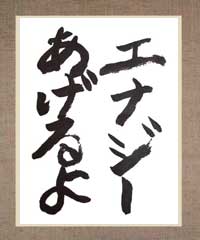 エナジー
あげるよ